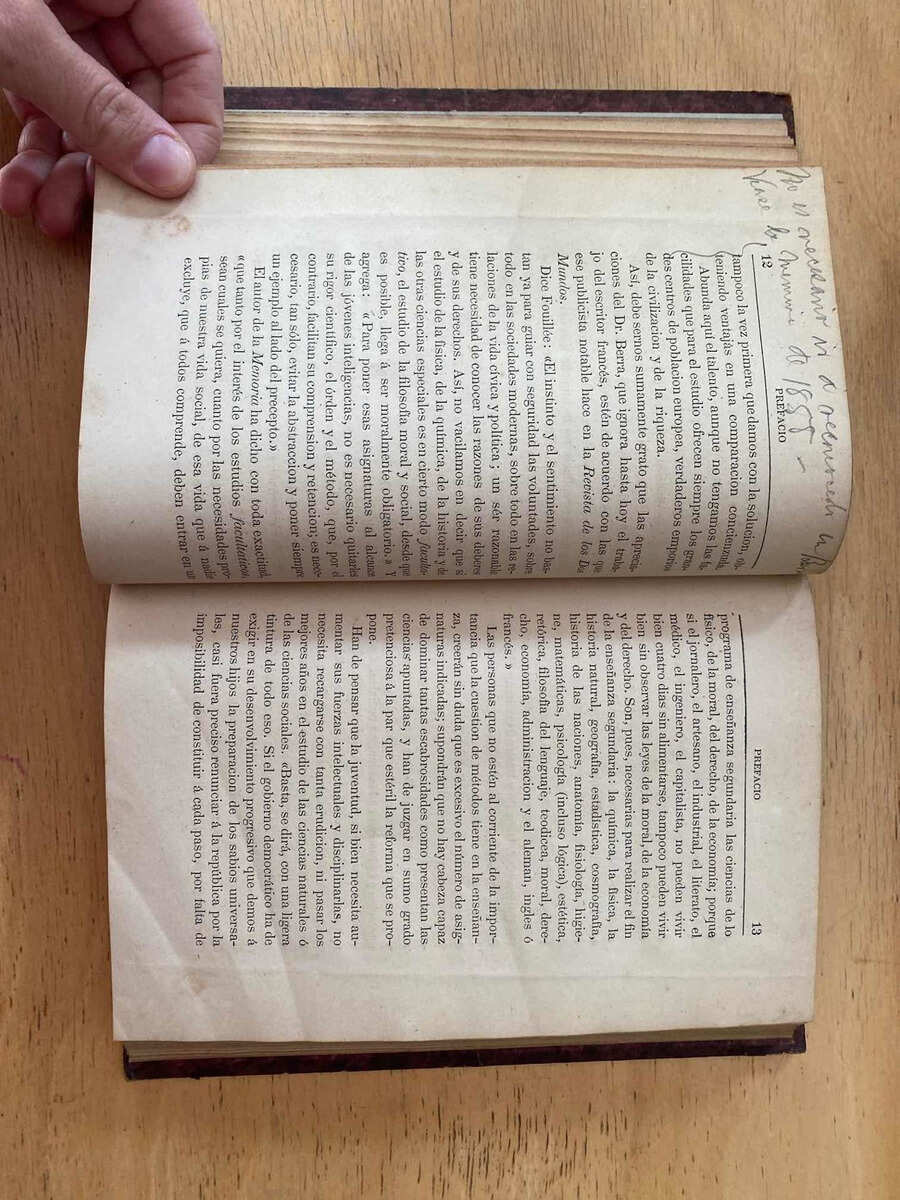 No es necesario ni
Vease la Memoria de 1878 –
12
PREFACIO
tampoco la vez primera que damos con la solucion, ob-
teniendo ventajas en una comparacion concienzuda
Abunda aquí el talento, aunque no tengamos las fa-
cilidades que para el estudio ofrecen siempre los gran-
des centros de poblacion europea, verdaderos emporios
de la civilizacion y de la riqueza.
Así, debe sernos sumamente grato que las aprecia-
ciones del Dr. Berra, que ignora hasta hoy el traba-
jo del escritor francés, estén de acuerdo con las que
ese publicista notable hace en la Revista de los Dos
Mundos.
Dice Fouille: «El instinto y el sentimiento no bas-
tan ya para guiar con seguridad las voluntades, sobre
todo en las sociedades modernas, sobre todo en las re-
laciones de la vida cívica y política; un sér razonable
tiene necesidad de conocer las razones de sus deberes
y de sus derechos. Así, no vacilamos en decir que si
el estudio de la física, de la química, de la historia y de
las otras ciencias especiales es en cierto modo faculta-
tivo, el estudio de la filosofía moral y social, desde que
es posible, llega á ser moralmente obligatorio.» Y
agrega: «Para poner esas asignaturas al alcance
de las jóvenes inteligencias, no es necesario quitarles
su rigor científico, el órden y el método, que, por el
contrario, facilitan su comprension y retencion; es nece-
cesario, tan sólo, evitar la abstraccion y poner siempre
un ejemplo al lado del precepto.»
El autor de la Memoria ha dicho con toda exactitud
«que tanto por el interés de los estudios facultativos,
sean cuales se quiera, cuanto por las necesidades pro-
pias de nuestra vida social, de esa vida que á nadie
excluye, que á todos comprende, deben entrar en un
PREFACIO
13
programa de enseñanza segundaria las ciencias de lo
físico, de la moral, del derecho, de la economía; porque
si el jornalero, el artesano, el industrial, el literato, el
médico, el ingeniero, el capitalista, no pueden vivir
bien cuatro dias sin alimentarse, tampoco pueden vivir
bien sin observar las leyes de la moral, de la economía
y del derecho. Son, pues, necesarias para realizar el fin
de la enseñanza segundaria: la química, la física, la
historia natural, geografía, estadística, cosmografía,
historia de las naciones, anatomía, fisiología, higie-
ne, matemáticas, psicología (incluso lógica), estética,
retórica, filosofía del lenguaje, teodicea, moral, dere-
cho, economía, administracion y el aleman, ingles ó
francés.»
Las personas que no estén al corriente de la impor-
tancia que la cuestion de métodos tiene en la enseñan-
za, creerán sin duda que es excesivo el número de asig-
naturas indicadas; supondrán que no hay cabeza capaz
de dominar tantas escabrosidades como presentan las
ciencias apuntadas, y han de juzgar en sumo grado
pretenciosa á la par que estéril la reforma que se pro-
pone.
Han de pensar que la juventud, si bien necesita au-
mentar sus fuerzas intelectuales y disciplinarlas, no
necesita recargarse con tanta erudicion, ni pasar los
mejores años en el estudio de las ciencias naturales ó
de las ciencias sociales. «Basta, se dirá, con una ligera
tintura de todo eso. Si el gobierno democrático ha de
exigir en su desenvolvimiento progresivo que demos á
nuestros hijos la preparacion de los sabios universa-
las, casi fuera preciso renunciar á la república por la
imposibilidad de constituir á cada paso, por falta de